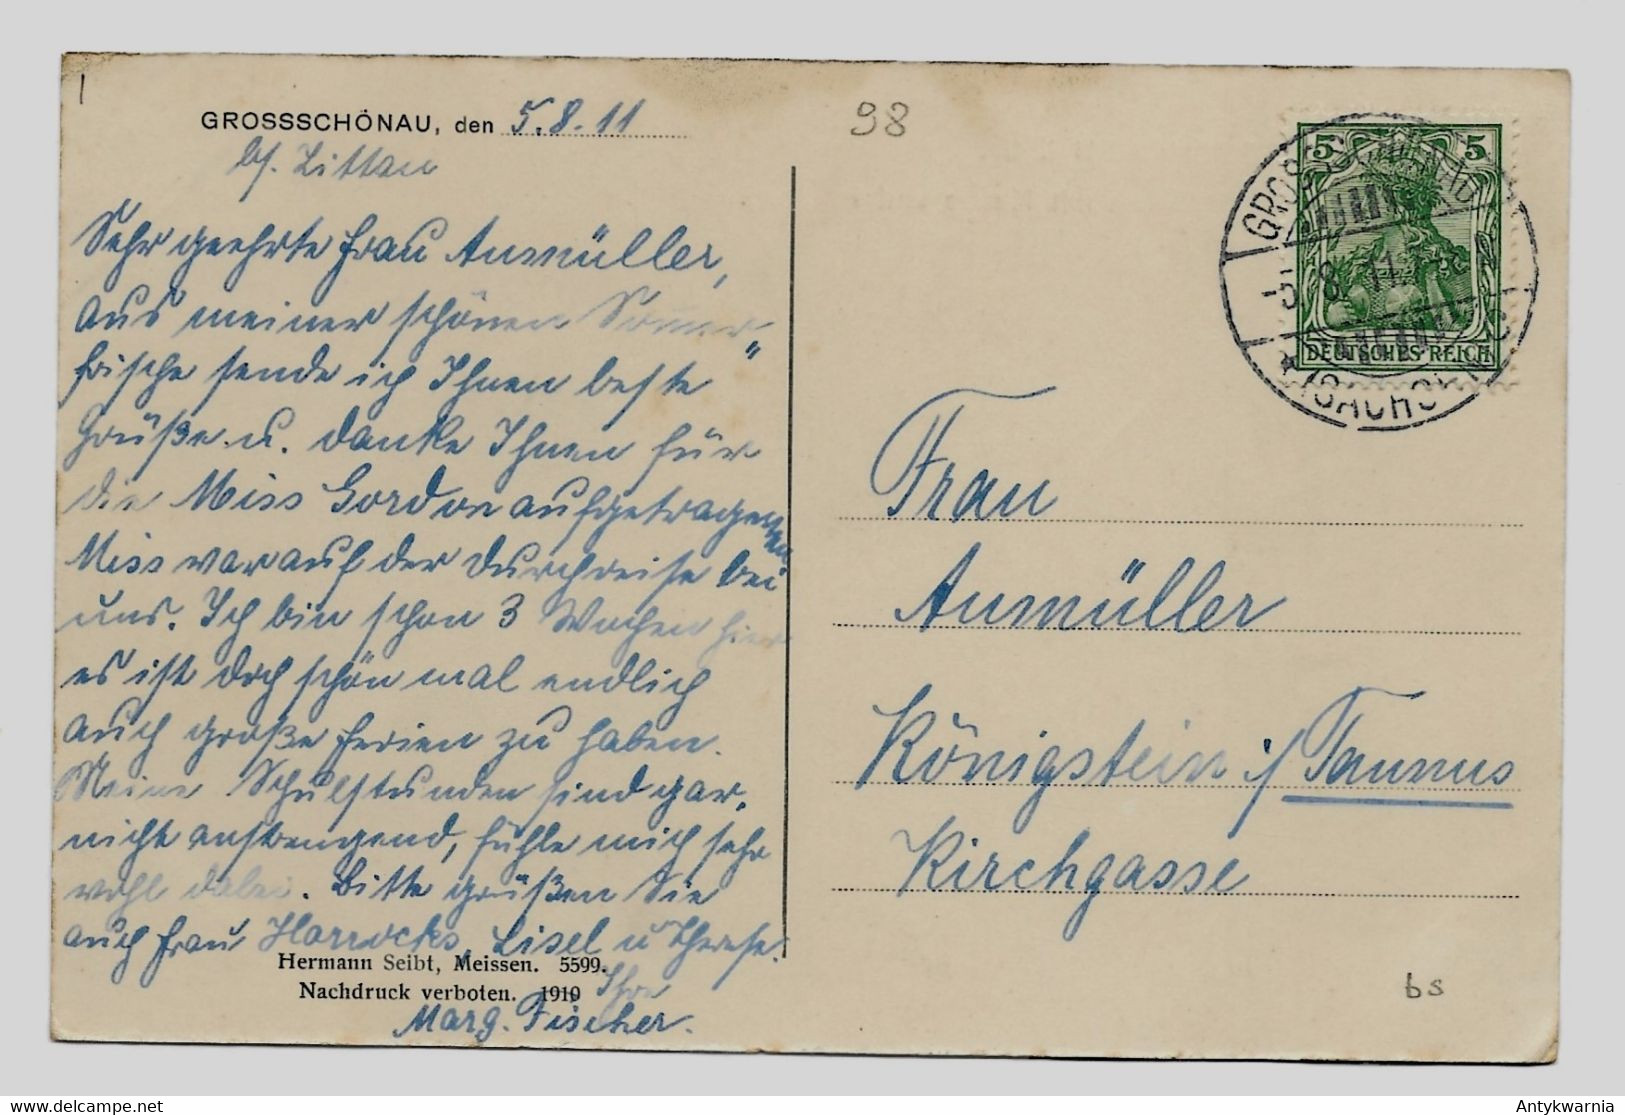 GROSSSCHÖNAU, den 5.8.11
98
b/. Zittau
Sehr geehrte Frau Aumüller,
aus meiner schönen Sommer
frische sende ich Ihnen beste
Grüße u. danke Ihnen für
die Miss Gordon aufgetragenen
Miss war auf der Durchreise bei
uns. Ich bin schon 3 Wochen hier
es ist doch schön mal endlich
auch große Ferien zu haben.
Meine Schulstunden sind gar
nicht anstrengend, fühle mich sehr
wohl dabei. Bitte grüßen Sie
auch Frau Horrocks, Lisel u Therese.
Hermann Seibt, Meissen. 5599.
Nachdruck verboten. 1910
Ihre
Marg. Fischer.
5 5
DEUTSCHES REICH
GROSSSCHÖNAU
5. 8. 11.
(SACHSEN)
Frau
Aumüller
Königstein i/Taunus
Kirchgasse
bs
Antykwarnia